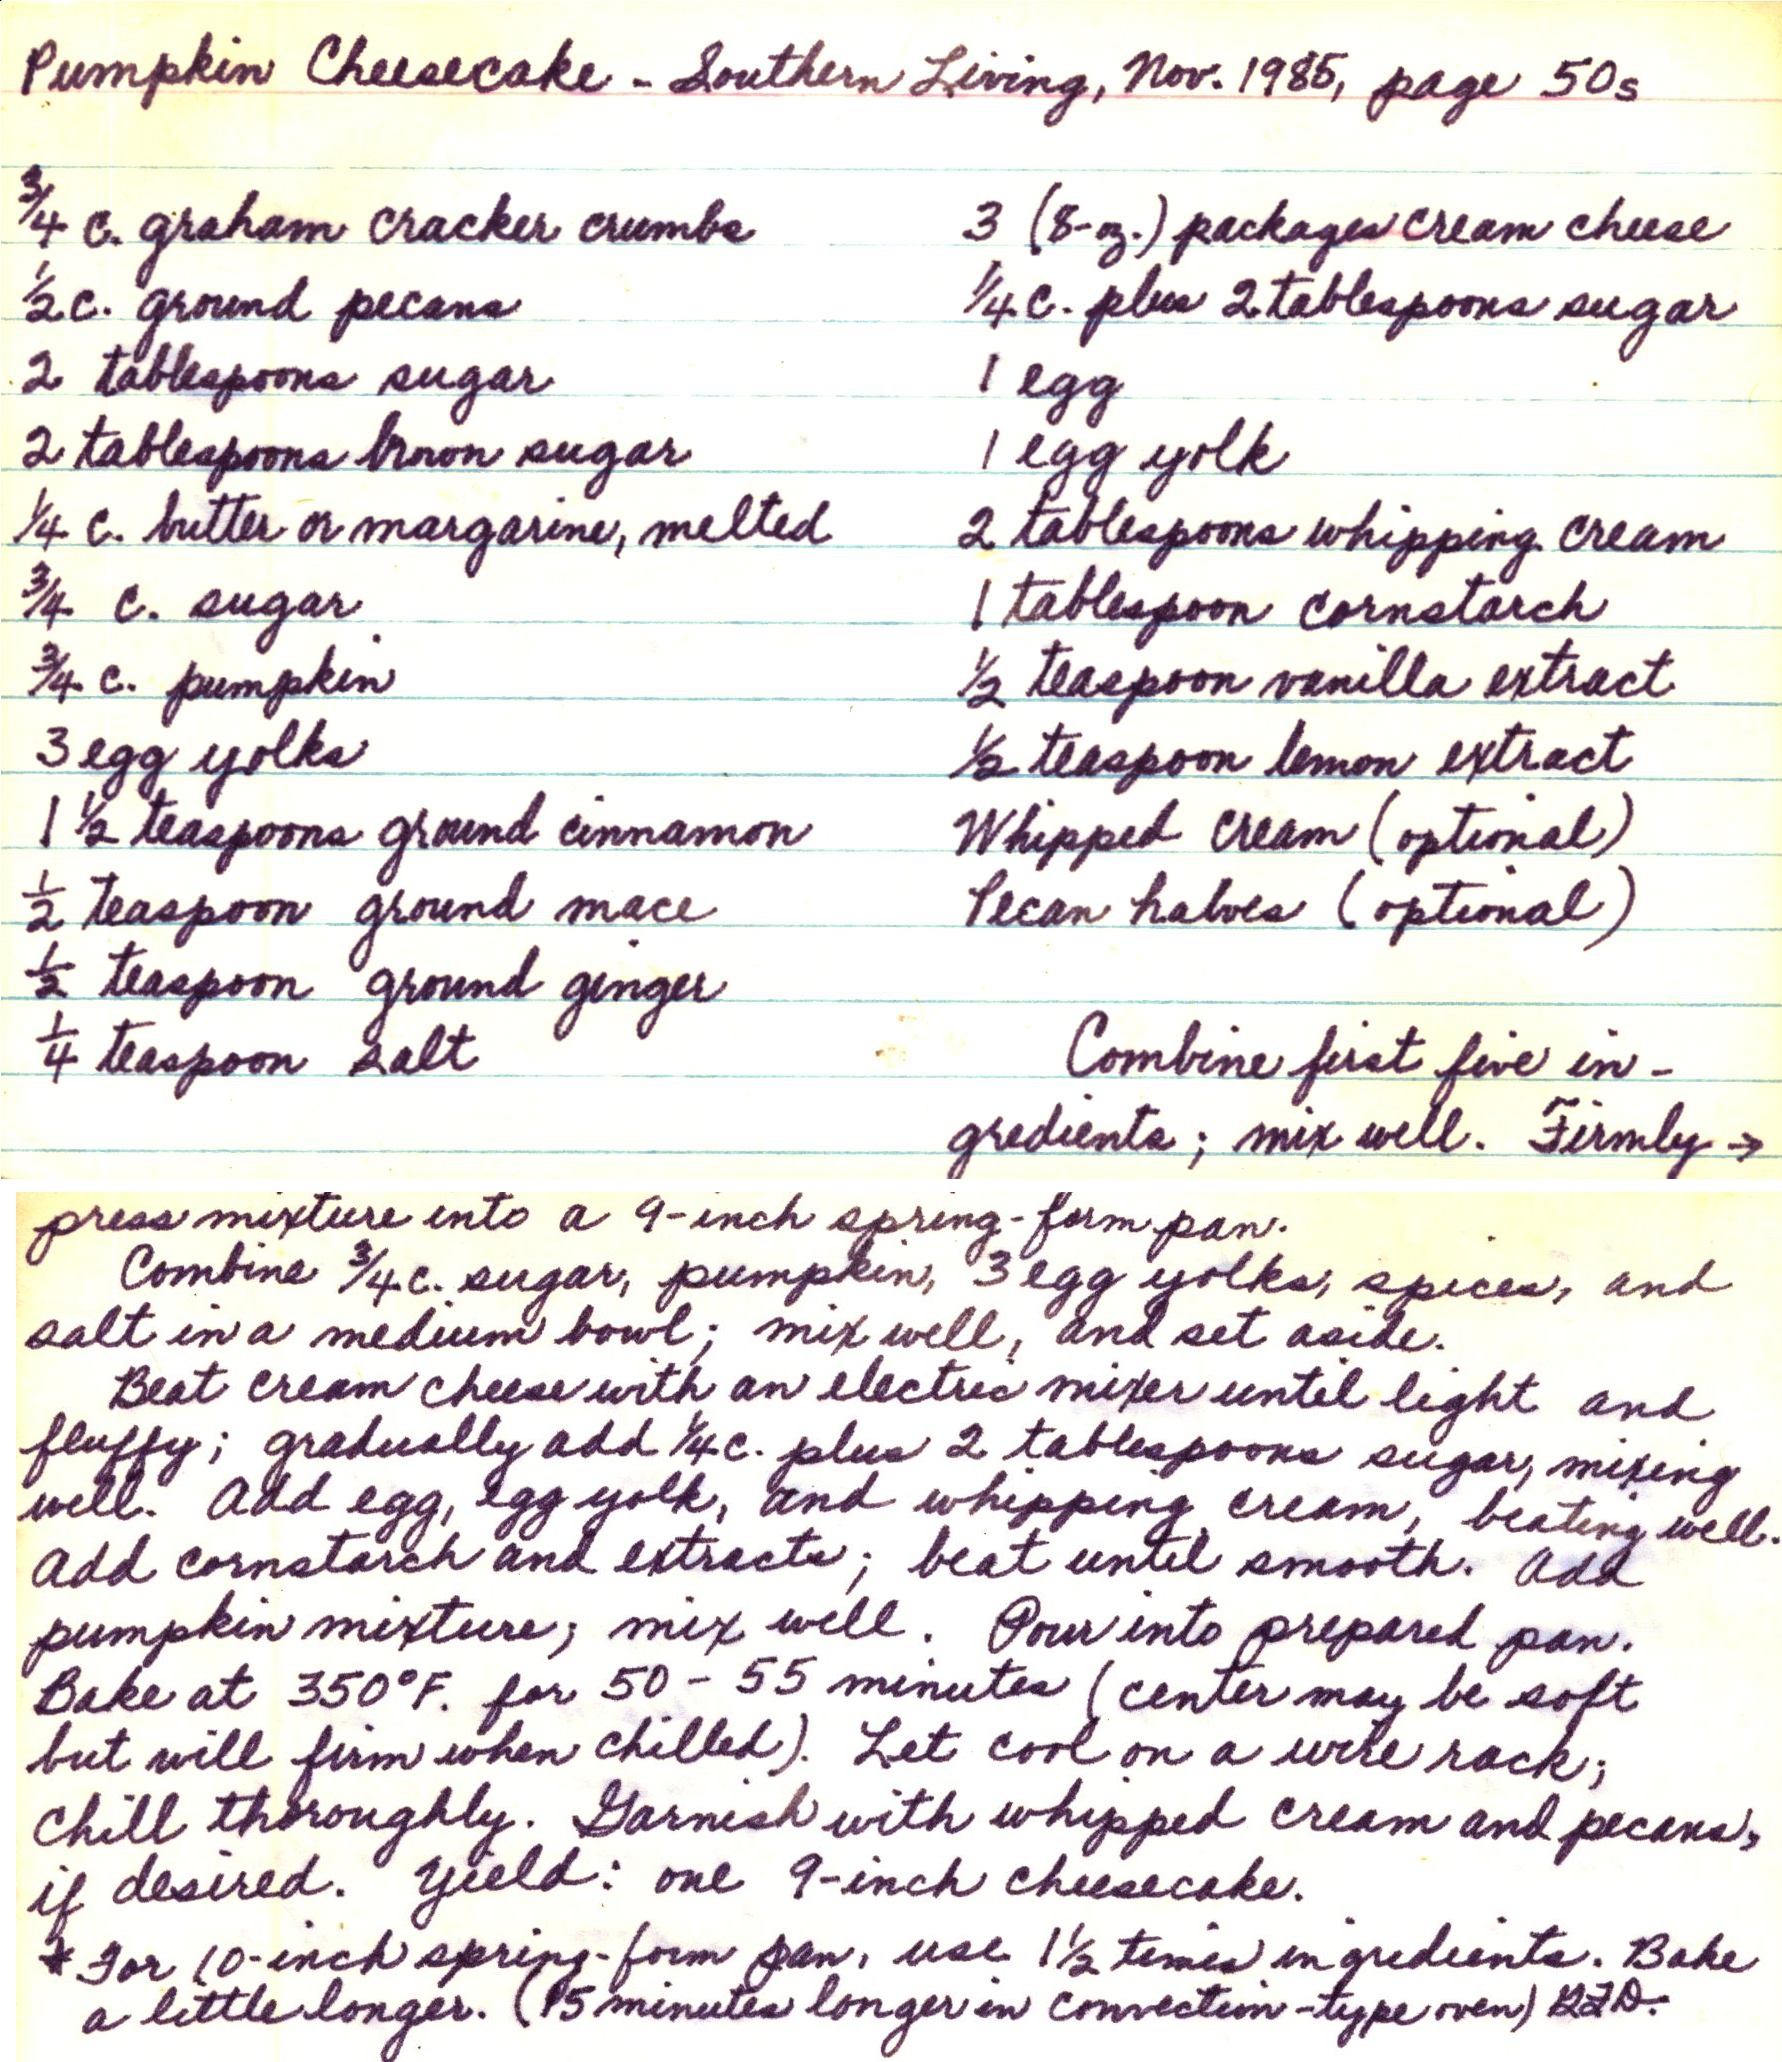 Pumpkin Cheesecake - Southern Living, Nov. 1985, page 50s
3/4 c. graham cracker crumbs
1/2 c. ground pecans
2 tablespoons sugar
2 tablespoons brown sugar
1/4 c. butter or margarine, melted
3/4 c. sugar
3/4 c. pumpkin
3 egg yolks
1 1/2 teaspoons ground cinnamon
1/2 teaspoon ground mace
1/2 teaspoon ground ginger
1/4 teaspoon salt
3 (8-oz.) packages cream cheese
1/4 c. plus 2 tablespoons sugar
1 egg
1 egg yolk
2 tablespoons whipping cream
1 tablespoon cornstarch
1/2 teaspoon vanilla extract
1/2 teaspoon lemon extract
Whipped cream (optional)
Pecan halves (optional)
Combine first five in-
gredients; mix well. Firmly →
press mixture into a 9-inch spring-form pan.
Combine 3/4 c. sugar, pumpkin, 3 egg yolks, spices, and
salt in a medium bowl; mix well, and set aside.
Beat cream cheese with an electric mixer until light and
fluffy; gradually add 1/4 c. plus 2 tablespoons sugar, mixing
well. Add egg, egg yolk, and whipping cream, beating well.
Add cornstarch and extracts; beat until smooth. Add
pumpkin mixture; mix well. Pour into prepared pan.
Bake at 350°F. for 50-55 minutes (center may be soft
but will firm when chilled). Let cool on a wire rack;
chill thoroughly. Garnish with whipped cream and pecans,
if desired. Yield: one 9-inch cheesecake.
* For 10-inch spring-form pan, use 1 1/2 times ingredients. Bake
a little longer. (15 minutes longer in convection-type oven)